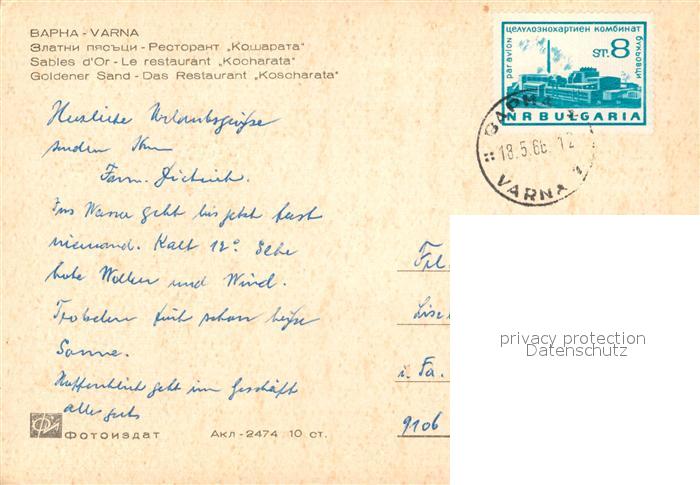 ВАРНА - VARNA
Златни пясъци - Ресторант „Кошарата"
Sables d'Or - Le restaurant „Kocharata"
Goldener Sand - Das Restaurant „Koscharata"
par avion
целулознохартиен комбинат
бukьовци
ST. 8
NR BULGARIA
ВАРНА
18.5.66. 12
VARNA 1
Herzliche Urlaubsgrüße
senden Ihnen
Fam. Dietrich.
Ins Wasser geht bis jetzt fast
niemand. Kalt 12°.
Wolken und Wind.
Trotzdem früh schon heiße
Sonne.
Hoffentlich geht im Geschäft
alles gut
Frl.
Lise
i. Fa.
9106
privacy protection
Datenschutz
Фотоиздат Акл - 2474 10 ст.